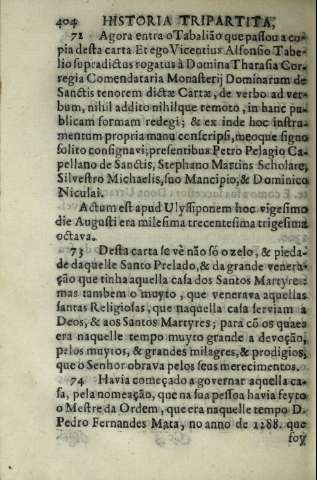 404 HISTORIA TRIPARTITA,
72 Agora entra o Tabalião que passou a co-
pia desta carta. Et ego Vicentius Alfonsio Tabe-
lio supradictus rogatus à Domina Tharasia Cor-
regia Comendataria Monasterij Dominarum de
Sanctis tenorem dictæ Cartæ, de verbo ad ver-
bum, nihil addito nihilque remoto, in hanc pu-
blicam formam redegi; & ex inde hoc instru-
mentum propria manu conscripsi, meoque signo
solito consignavi; presentibus Petro Pelagio Ca-
pellano de Sanctis, Stephano Martins Scholare,
Silvestro Michaelis, suo Mancipio, & Dominico
Niculai.
Actum est apud Ulyssiponem hoc vigesimo
die Augusti era milesima trecentesima trigesima
octava.
73 Desta carta se vè não só o zelo, & pieda-
de daquelle Santo Prelado, & da grande venera-
ção que tinha aquella casa dos Santos Martyres:
mas tambem o muyto, que venerava aquellas
santas Religiosas, que naquella casa serviam a
Deos, & aos Santos Martyres; para cõ os quaes
era naquelle tempo muyto grande a devoção,
pelos muytos, & grandes milagres, & prodigios,
que o Senhor obrava pelos seus merecimentos.
74 Havia começado a governar aquella ca-
sa, pela nomeação, que na sua pessoa havia feyto
o Mestre da Ordem, que era naquelle tempo D.
Pedro Fernandes Mata, no anno de 1288. que
foy